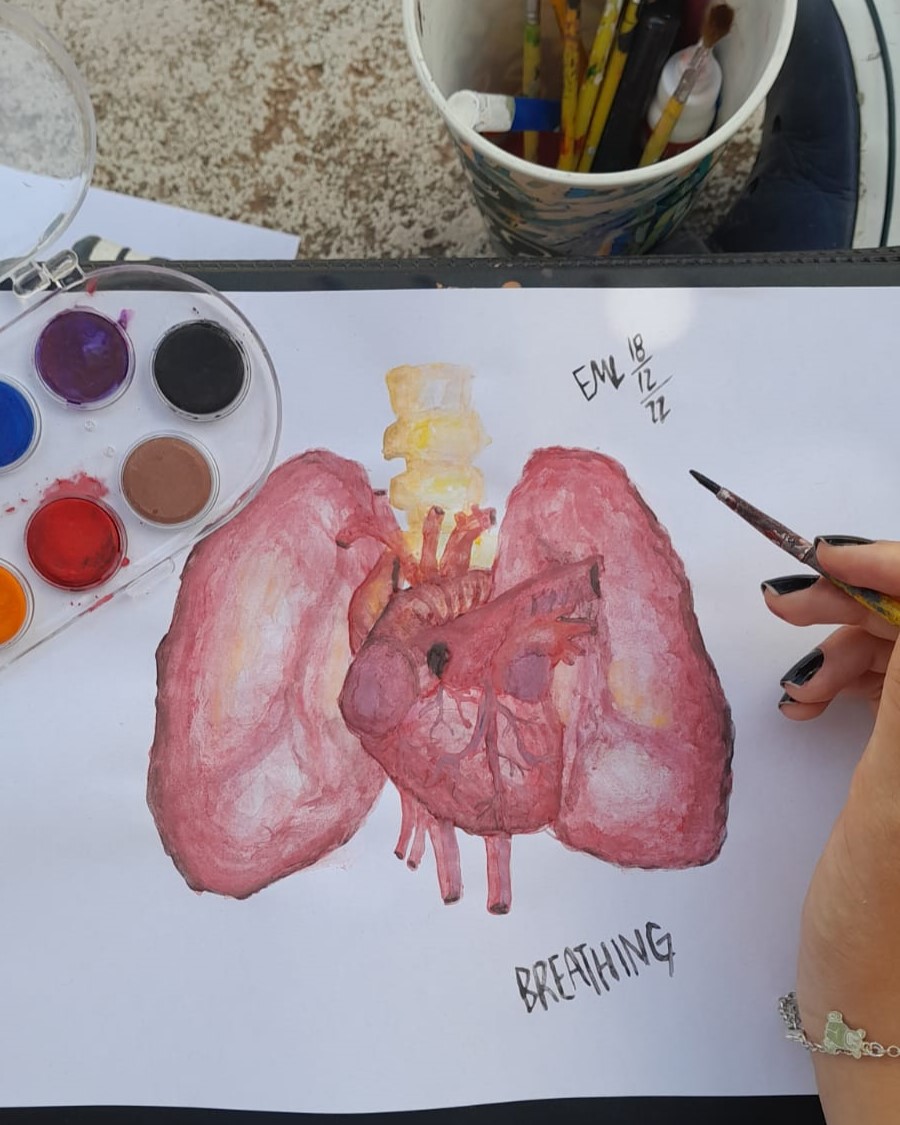 EML 18/12/22
BREATHING